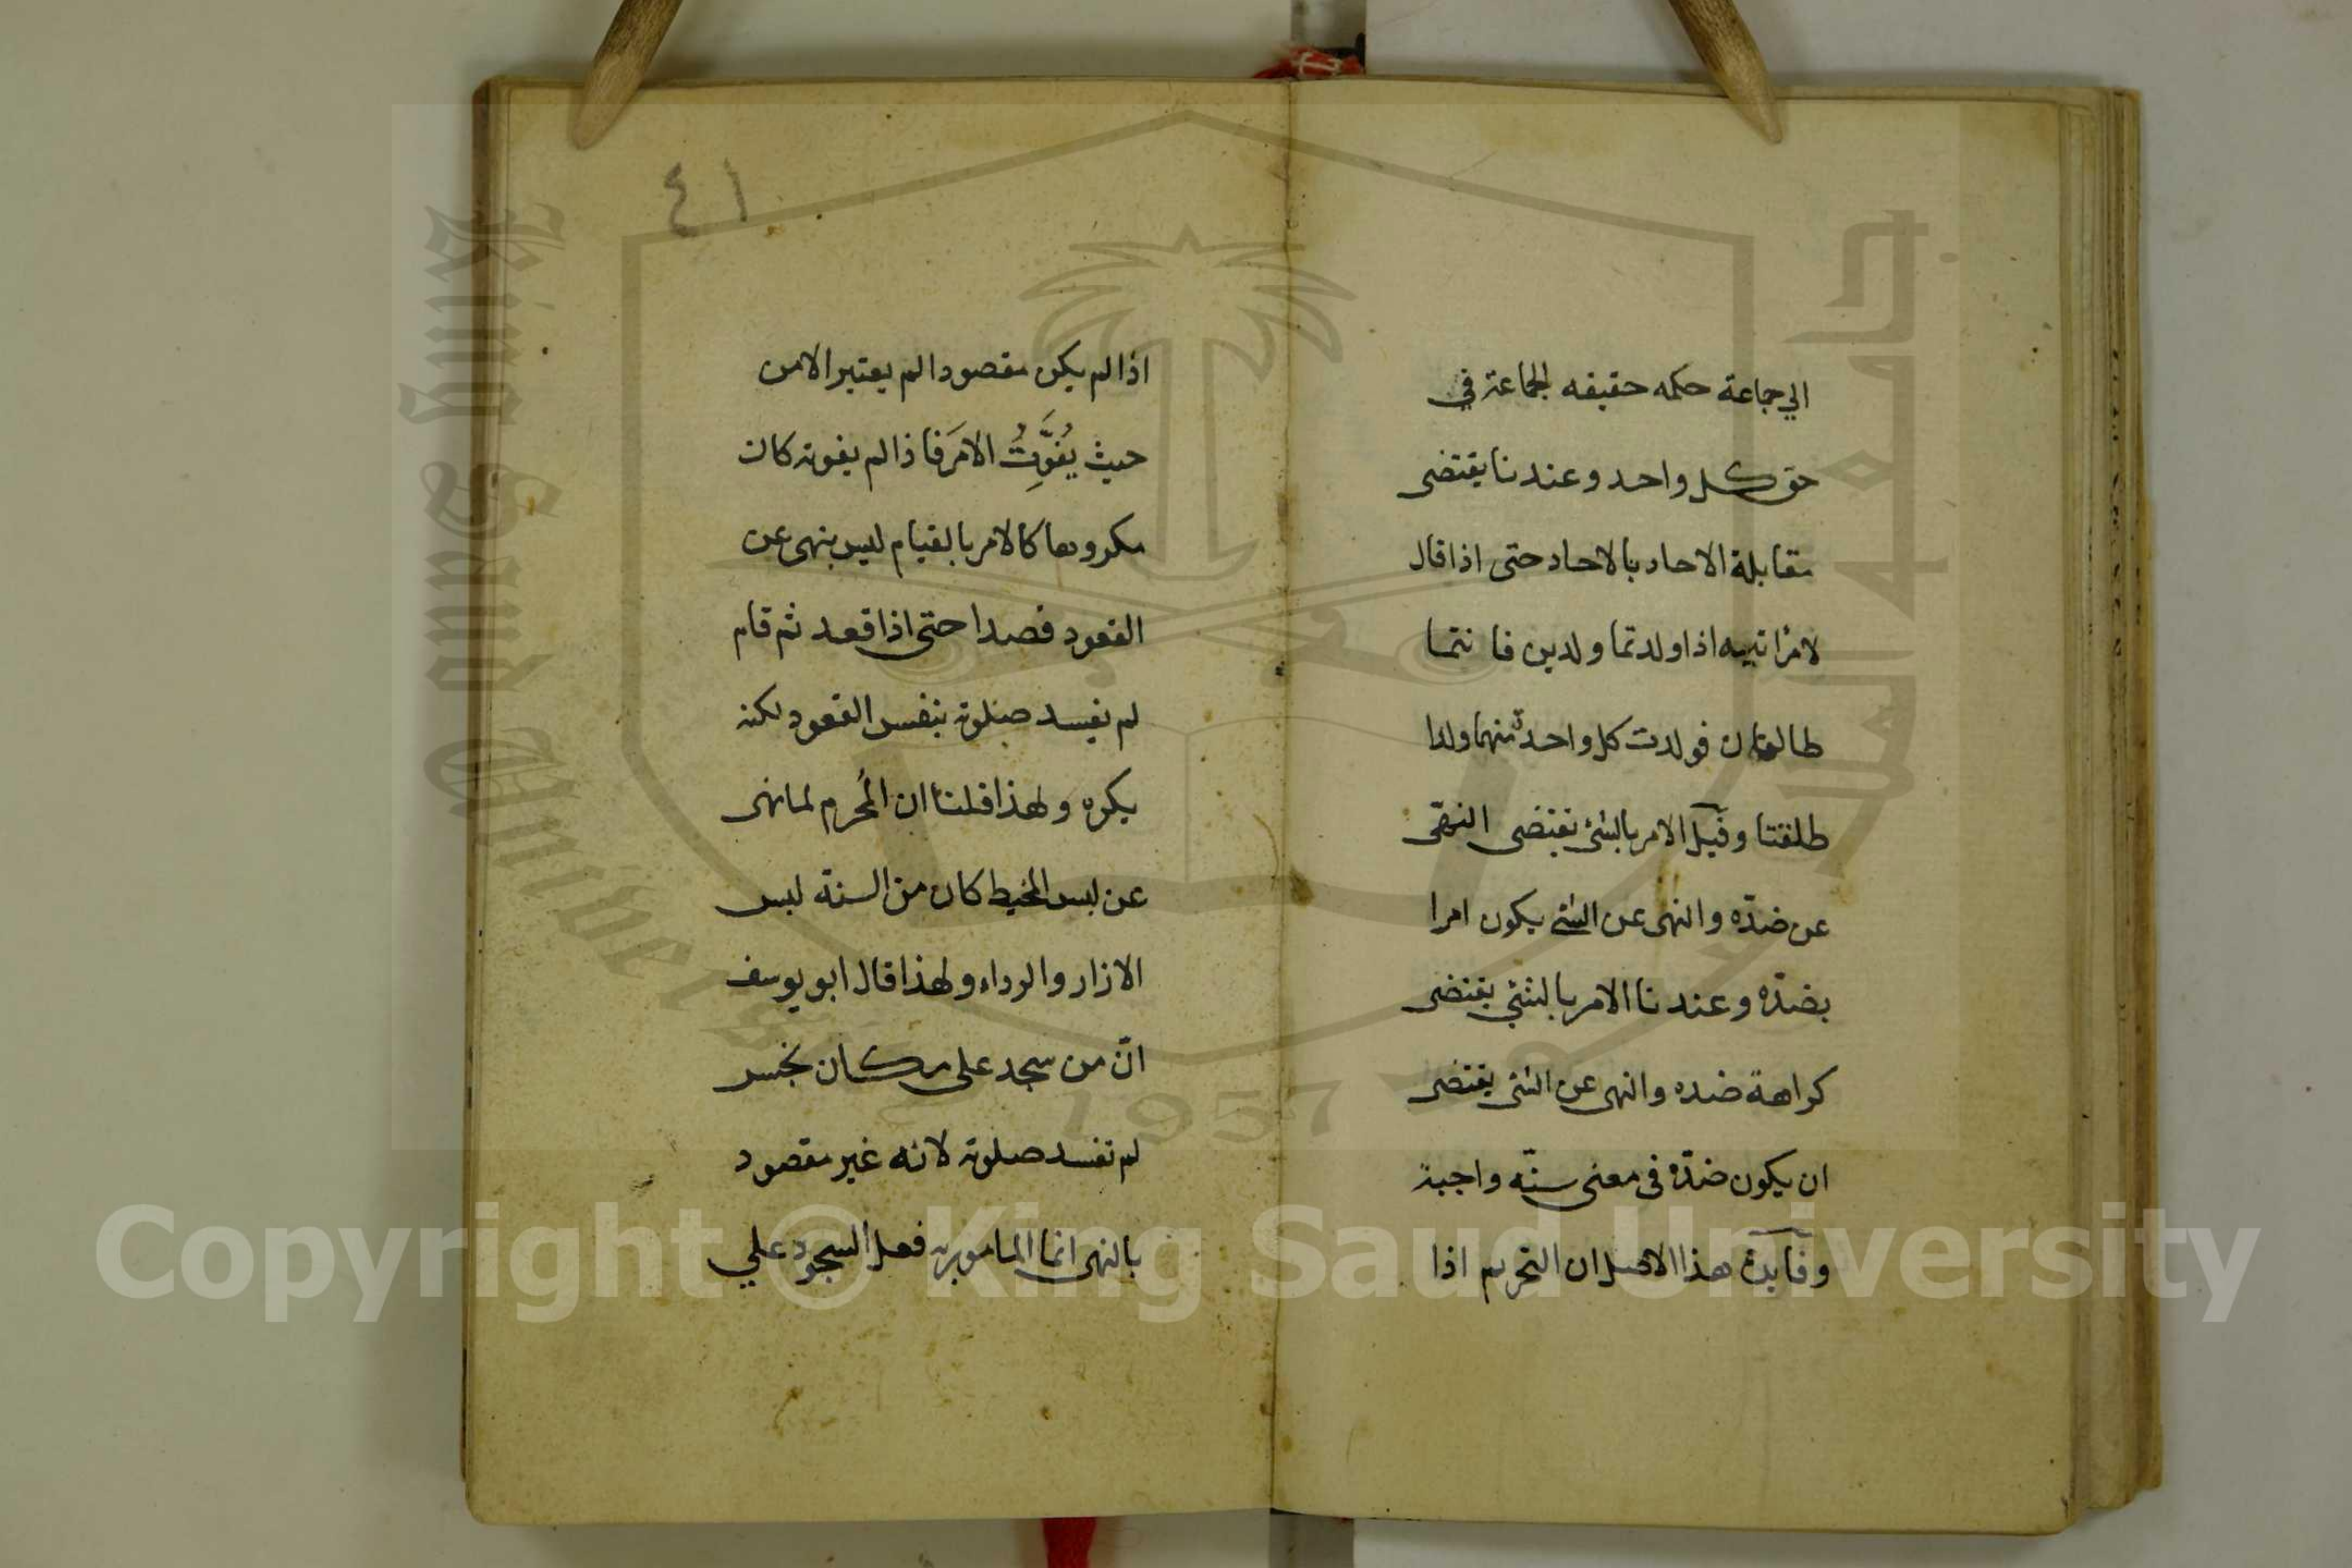 الي جماعة حكمه حقيقه الجماعة في
حق كل واحد وعندنا يقتضى
مقابلة الاحاد بالاحاد حتى اذا قال
لامراتيه اذا ولدتما ولدين فا نتما
طالقتان فولدت كل واحدة منهما ولدا
طلقتا وقيل الامر بالشئ يقتضى النهى
عن ضدّه والنهى عن الشئ يكون امرا
بضدّه وعندنا الامر بالشئ يقتضى
كراهة ضده والنهى عن الشئ يقتضى
ان يكون ضدّه فى معنى سنّه واجبة
وفايدة هذا الاصل ان التحريم اذا
٤١
اذا لم يكن مقصودا لم يعتبر الا من
حيث يُفَوِّتُ الامَر فاذا لم يفوته كان
مكروها كالامر بالقيام ليس بنهى عن
القعود قصدا حتى اذا قعد ثم قام
لم يفسد صلوته بنفس القعود لكنه
يكره ولهذا قلنا ان المُحرم لما نهى
عن لبس المخيط كان من السنة لبس
الازار والرداء ولهذا قال ابو يوسف
انّ من سجد على مكان نجس
لم تفسد صلوته لانه غير مقصود
بالنهى انما المامور به فعل السجود علي
جامعة الملك سعود
King Saud University
1957
Copyright © King Saud University